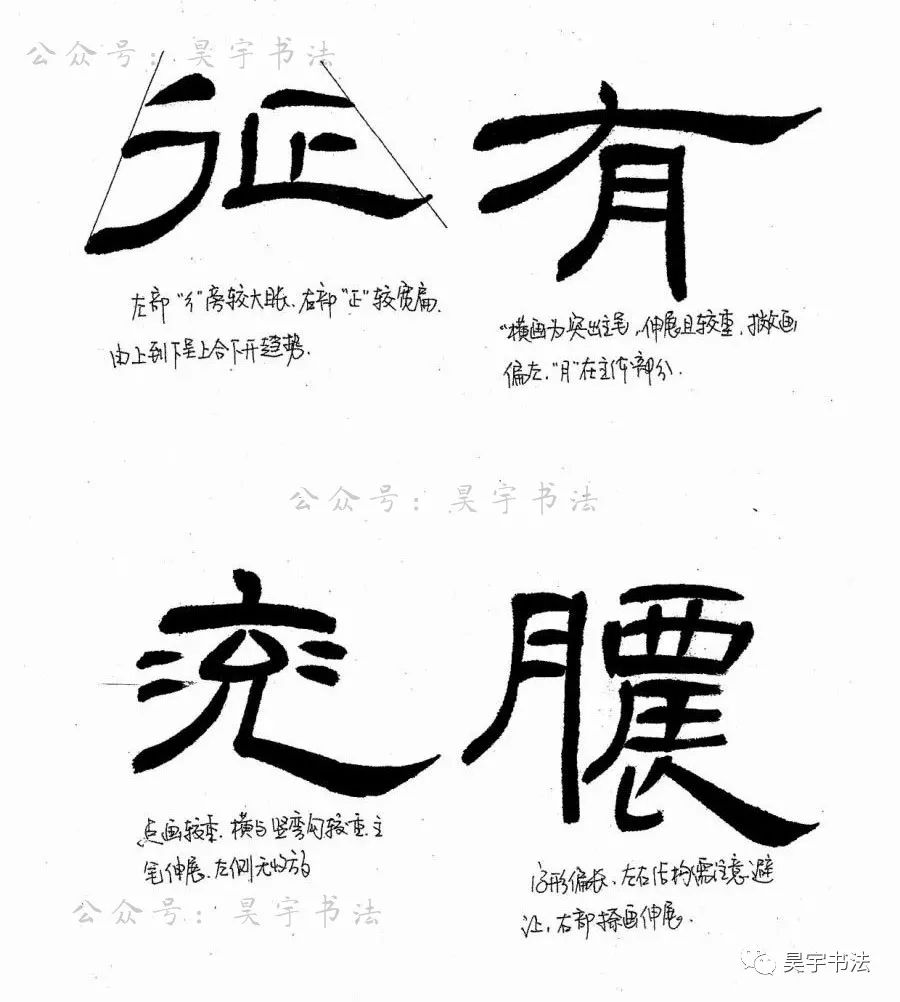 公众号：昊宇书法
征 有
左部"彳"旁较大且长、右部"正"较宽扁、
由上到下呈上合下开趋势.
"横画为突出主笔，伸展且较重，撇画
偏左，"月"在主体部分.
公众号：昊宇书法
点画较重、横与竖弯勾较重、主
笔伸展、左侧无
字形偏长、左右结构需注意避
让，右部捺画伸展.
公众号：昊宇书法
昊宇书法